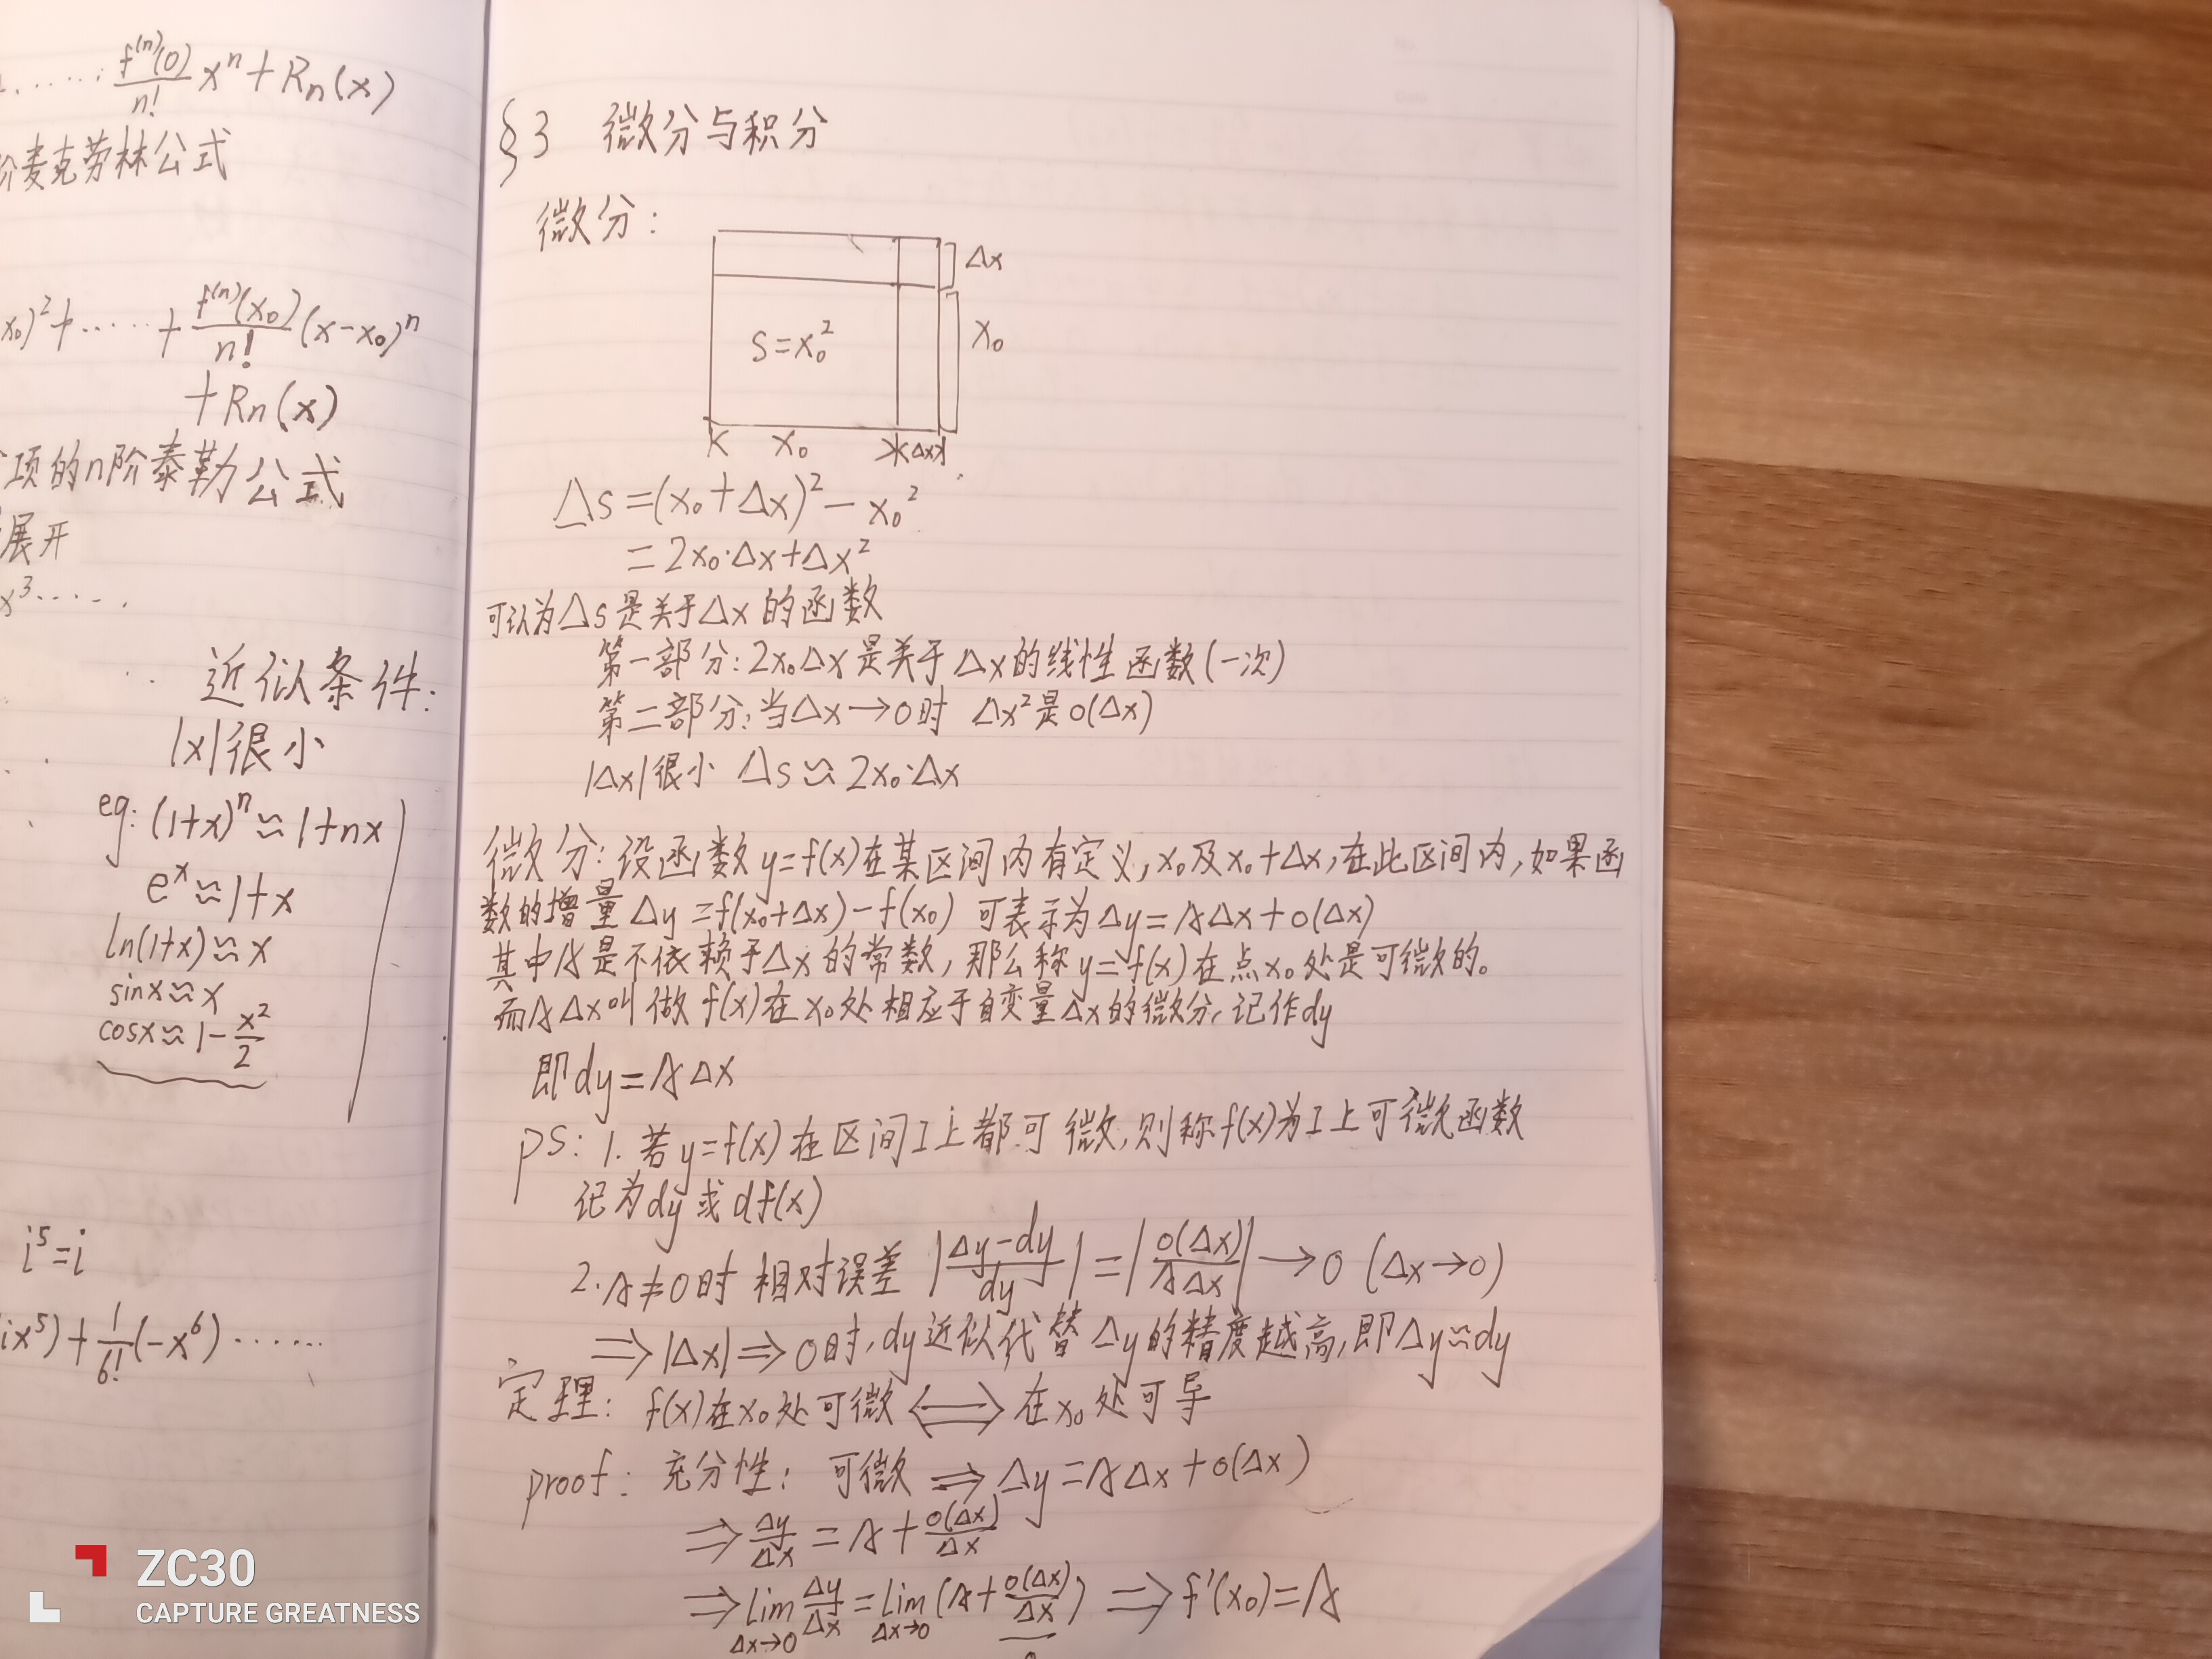 ……f⁽ⁿ⁾(0)/n! xⁿ+Rn(x)
阶麦克劳林公式
x₀)²+……+f⁽ⁿ⁾(x₀)/n!(x-x₀)ⁿ
+Rn(x)
项的n阶泰勒公式
展开
x³……
近似条件:
|x|很小
eg: (1+x)ⁿ≈1+nx
eˣ≈1+x
ln(1+x)≈x
sinx≈x
cosx≈1-x²/2
i⁵=i
ix⁵)+1/6!(-x⁶)……
§3 微分与积分
微分:
Δx
S=x₀²
x₀
x₀ Δx
Δs=(x₀+Δx)²-x₀²
=2x₀·Δx+Δx²
可认为Δs是关于Δx的函数
第一部分:2x₀Δx是关于Δx的线性函数(一次)
第二部分:当Δx→0时 Δx²是o(Δx)
|Δx|很小 Δs≈2x₀·Δx
微分:设函数y=f(x)在某区间内有定义,x₀及x₀+Δx,在此区间内,如果函
数的增量Δy=f(x₀+Δx)-f(x₀) 可表示为Δy=AΔx+o(Δx)
其中A是不依赖于Δx的常数,那么称y=f(x)在点x₀处是可微的。
而AΔx叫做f(x)在x₀处相应于自变量Δx的微分,记作dy
即dy=AΔx
ps: 1.若y=f(x)在区间I上都可微,则称f(x)为I上可微函数
记为dy或df(x)
2.A≠0时 相对误差 |(Δy-dy)/dy|=|o(Δx)/AΔx|→0 (Δx→0)
⇒|Δx|⇒0时,dy近似代替Δy的精度越高,即Δy≈dy
定理: f(x)在x₀处可微⟺在x₀处可导
proof: 充分性: 可微⇒Δy=AΔx+o(Δx)
⇒Δy/Δx=A+o(Δx)/Δx
⇒lim(Δx→0) Δy/Δx=lim(Δx→0)(A+o(Δx)/Δx)⇒f'(x₀)=A
ZC30
CAPTURE GREATNESS